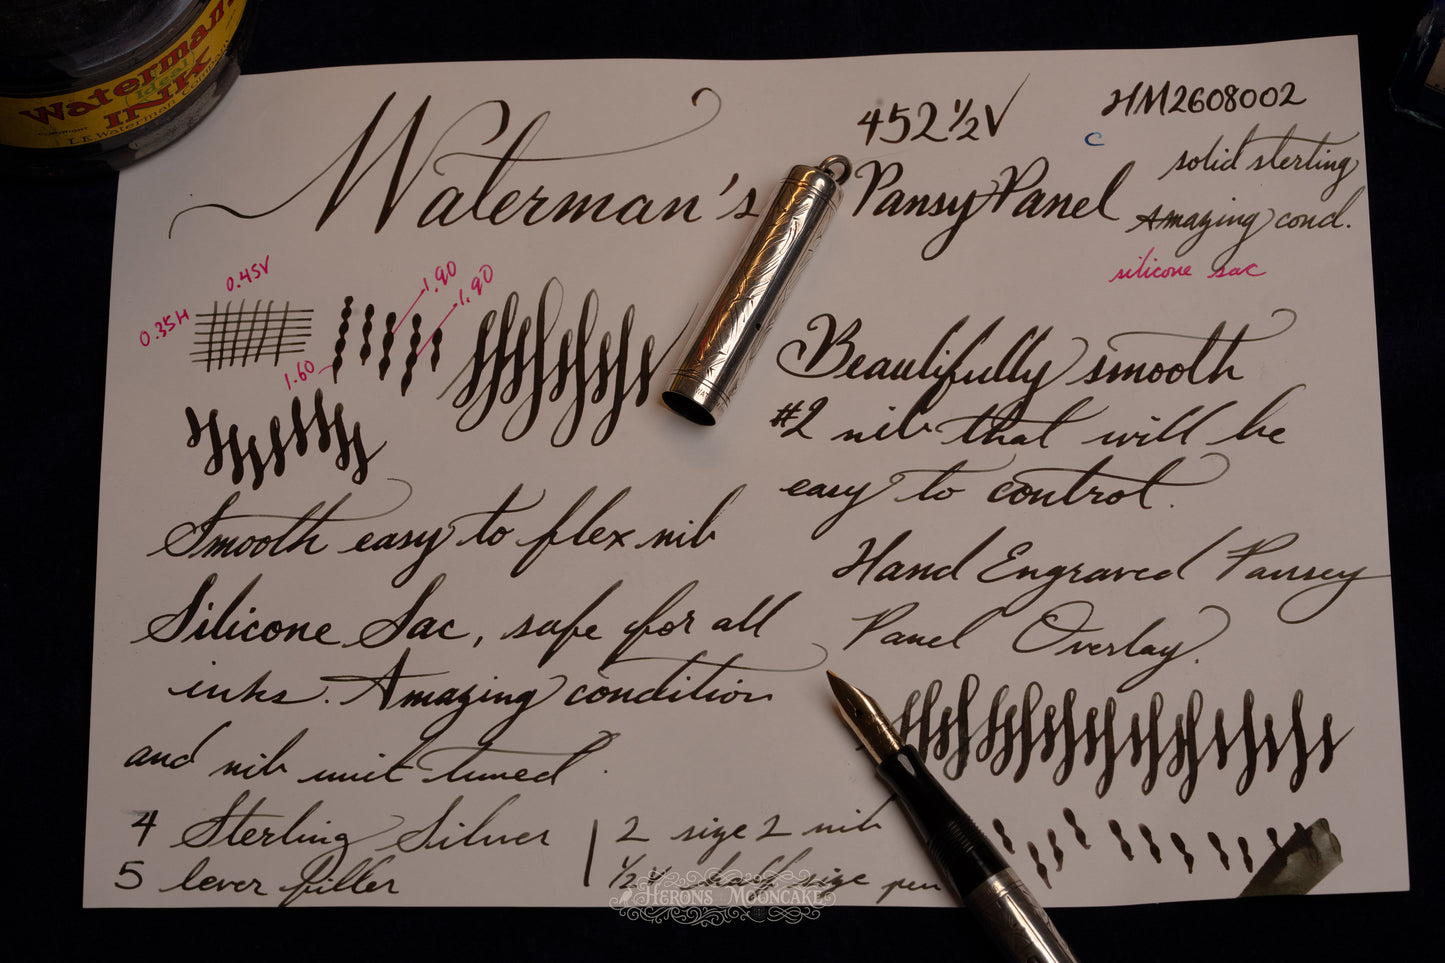 Waterman's
Ideal
INK
L.E. Waterman Company
Waterman's
452½V
Pansy Panel
HM2608002
c
solid sterling
Amazing cond.
silicone sac
0.45V
0.35H
1.90
1.90
1.60
Beautifully smooth
#2 nib that will be
easy to control.
Smooth easy to flex nib
Silicone Sac, safe for all
inks. Amazing condition
and nib unit tuned.
Hand Engraved Pansey
Panel Overlay.
4 Sterling Silver
5 lever filler
2 size 2 nib
½V half size pen
HERONS MOONCAKE